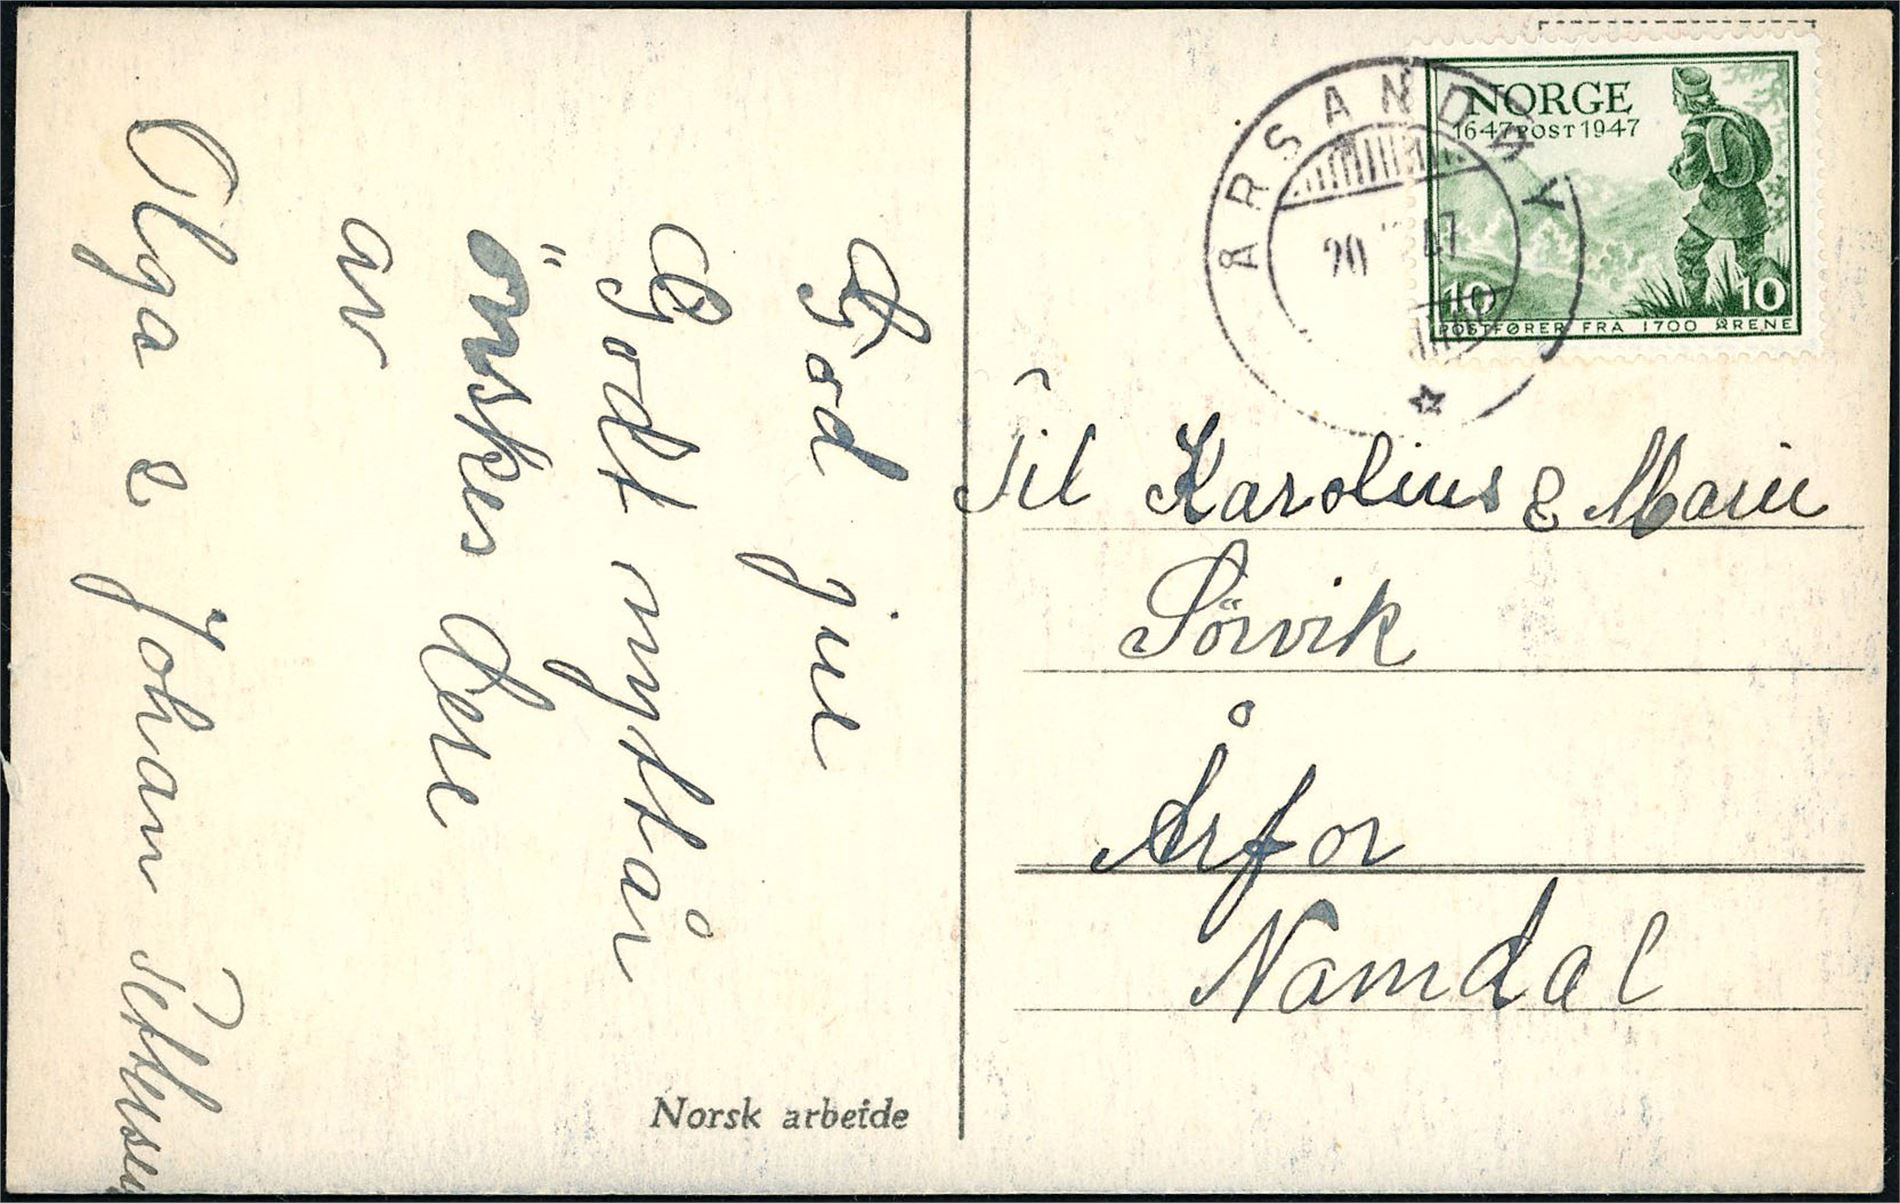 God jul
Godt nyttår
önskes Dere
av
Olga & Johan Pettersen
Norsk arbeide
NORGE
1647 POST 1947
10 10
POSTFØRER FRA 1700 ÅRENE
ÅRSANDØY
20 47
Til Karolius & Marie
Sörvik
Årfor
Namdal